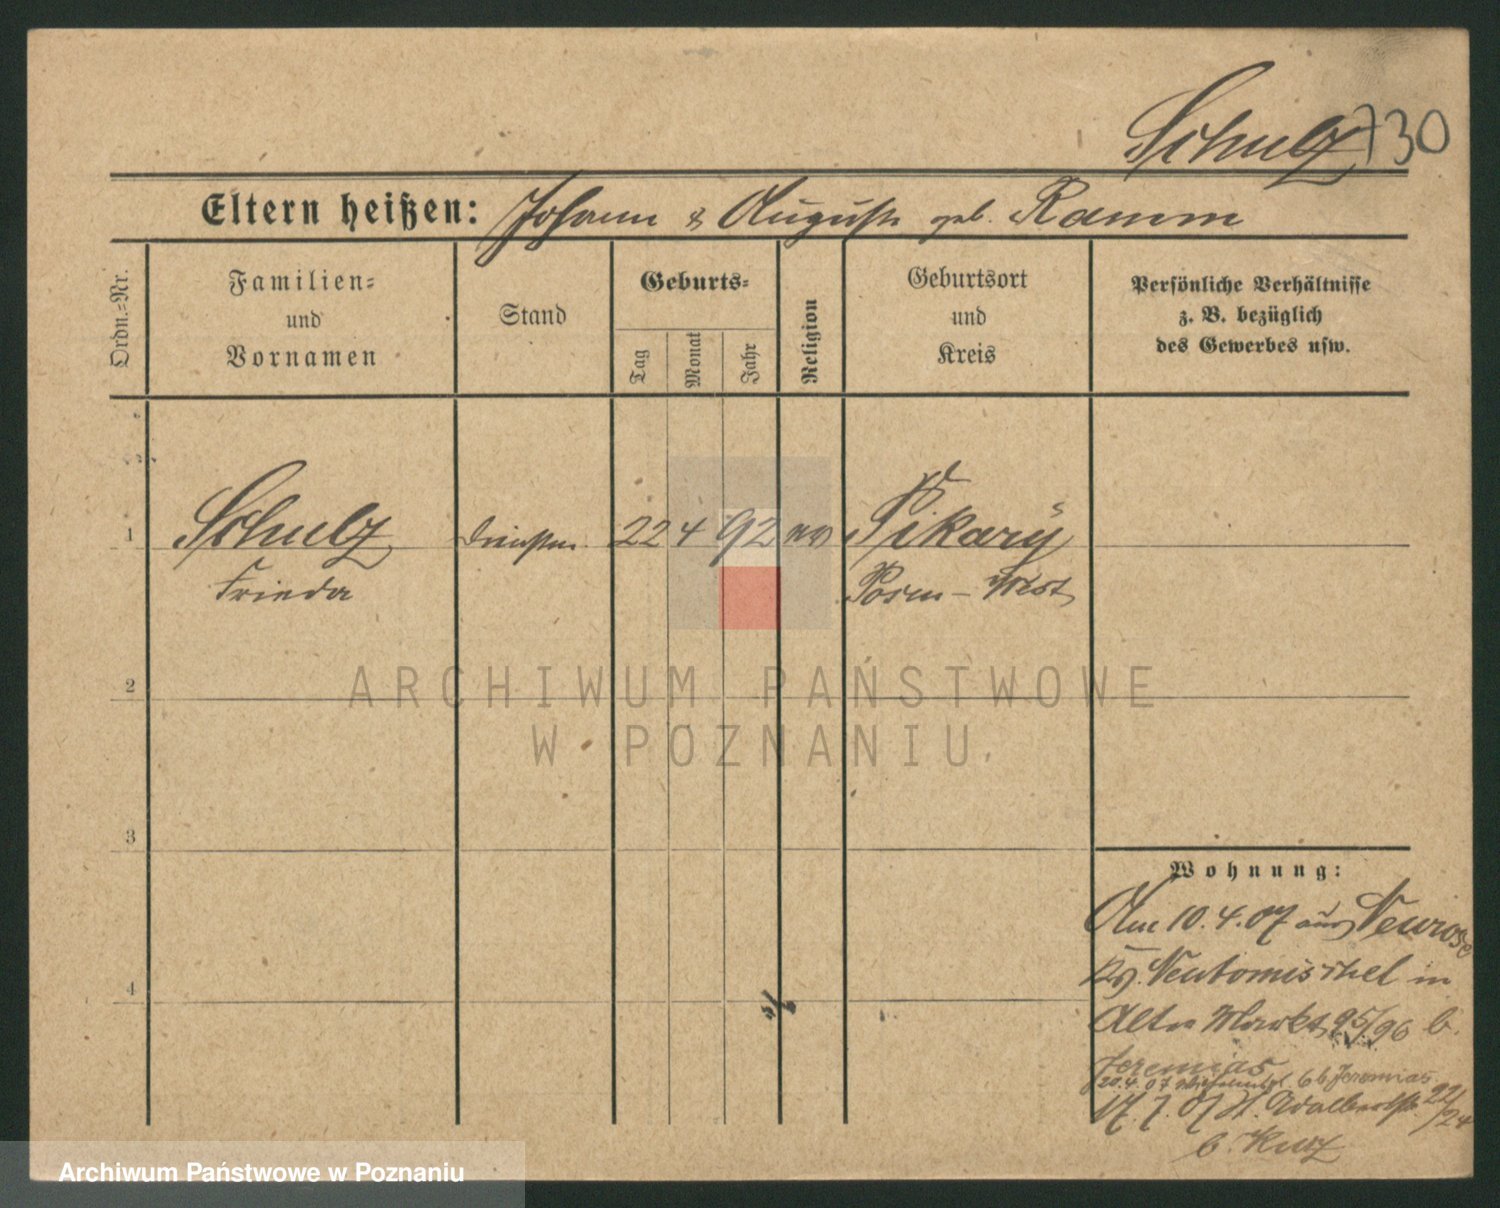 Schulz 730
Eltern heißen: Johann & Auguste geb. Ramm
Ordn.-Nr.
Familien-
und
Vornamen
Stand
Geburts-
Tag
Monat
Jahr
Religion
Geburtsort
und
Kreis
Persönliche Verhältnisse
z. B. bezüglich
des Gewerbes usw.
1 Schulz 22 4 92 ev Pikary
Frieda Posen-West
2
ARCHIWUM PAŃSTWOWE
W POZNANIU
3
4
Wohnung:
Am 10.4.07 aus Neurose
Kr. Neutomischel in
Alter Markt 95/96 b.
Jeremias
20.4.07 6 b Jeremias
17.7.07 St. Adalbertstr 22/24
b. Kurz
Archiwum Państwowe w Poznaniu